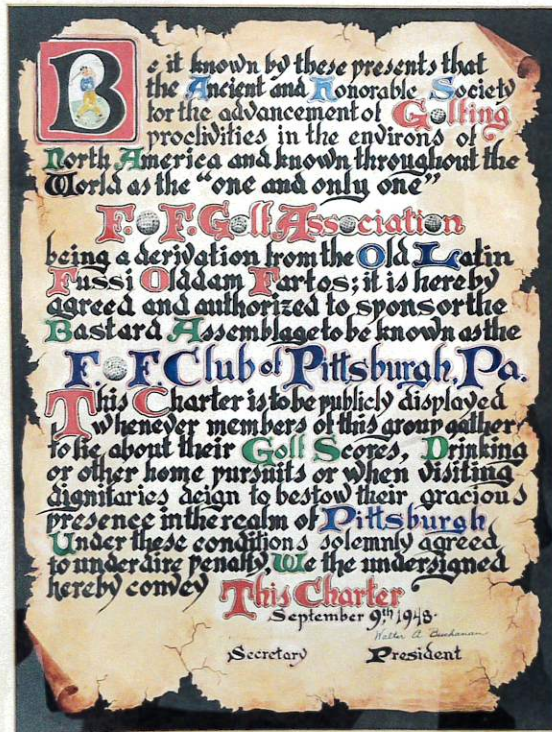 Be it known by these presents that
the Ancient and Honorable Society
for the advancement of Golfing
proclivities in the environs of
North America and known throughout the
World as the "one and only one"
F.O.F. Golf Association
being a derivation from the Old Latin
Fussi Olddam Fartos; it is hereby
agreed and authorized to sponsor the
Bastard Assemblage to be known as the
F.O.F. Club of Pittsburgh, Pa.
This Charter is to be publicly displayed
whenever members of this group gather
to lie about their Golf Scores, Drinking
or other home pursuits or when visiting
dignitaries deign to bestow their gracious
presence in the realm of Pittsburgh
Under these conditions solemnly agreed
to under dire penalty, We the undersigned
hereby convey This Charter
September 9th 1948.
Walter A Buchanan
Secretary President